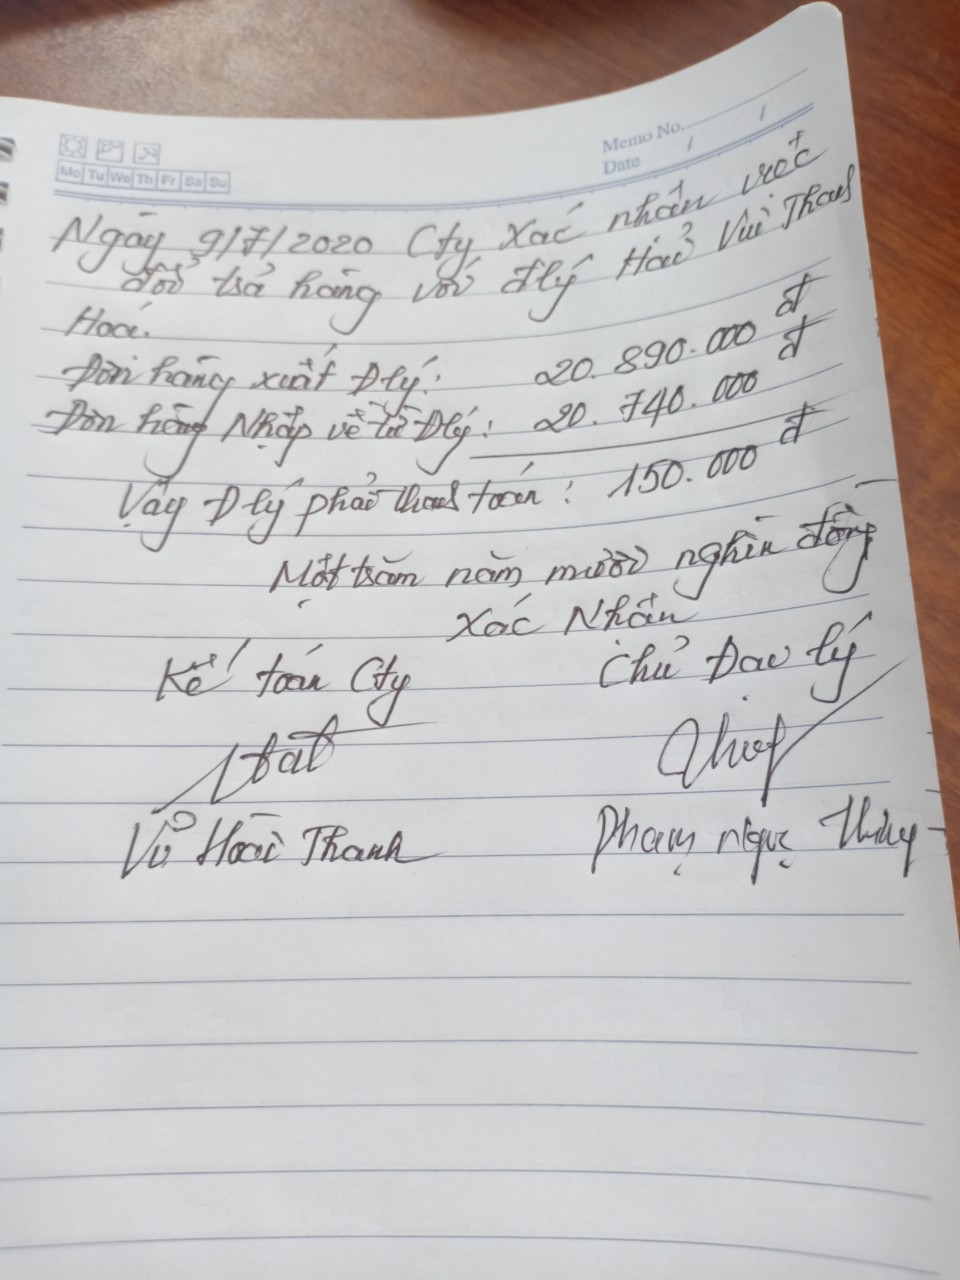 Memo No.
Date / /
Mo Tu We Th Fr Sa Su
Ngày 9/7/2020 Cty Xác nhận việc
đổi trả hàng với đlý Hải Vui Thanh
Hoá.
Đơn hàng xuất Đlý: 20.890.000 đ
Đơn hàng Nhập về từ Đlý: 20.740.000 đ
Vậy Đlý phải thanh toán: 150.000 đ
Một trăm năm mươi nghìn đồng
Xác Nhận
Kế toán Cty Chủ Đại lý
Vũ Hoài Thanh Phạm Ngọc Thủy